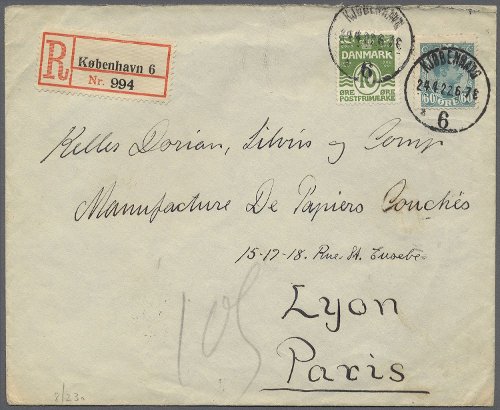 R København 6
Nr. 994
KJØBENHAVN
24.4.22.6-7E
6
DANMARK
10
ØRE ØRE
POSTFRIMÆRKE
KJØBENHAVN
24.4.22.6-7E
* 6
60 ØRE 60
Kelles Dorian, Silvis og Comp
Manufacture De Papiers Couchés
15-17-18. Rue St. Eusebe
Lyon
Paris
105